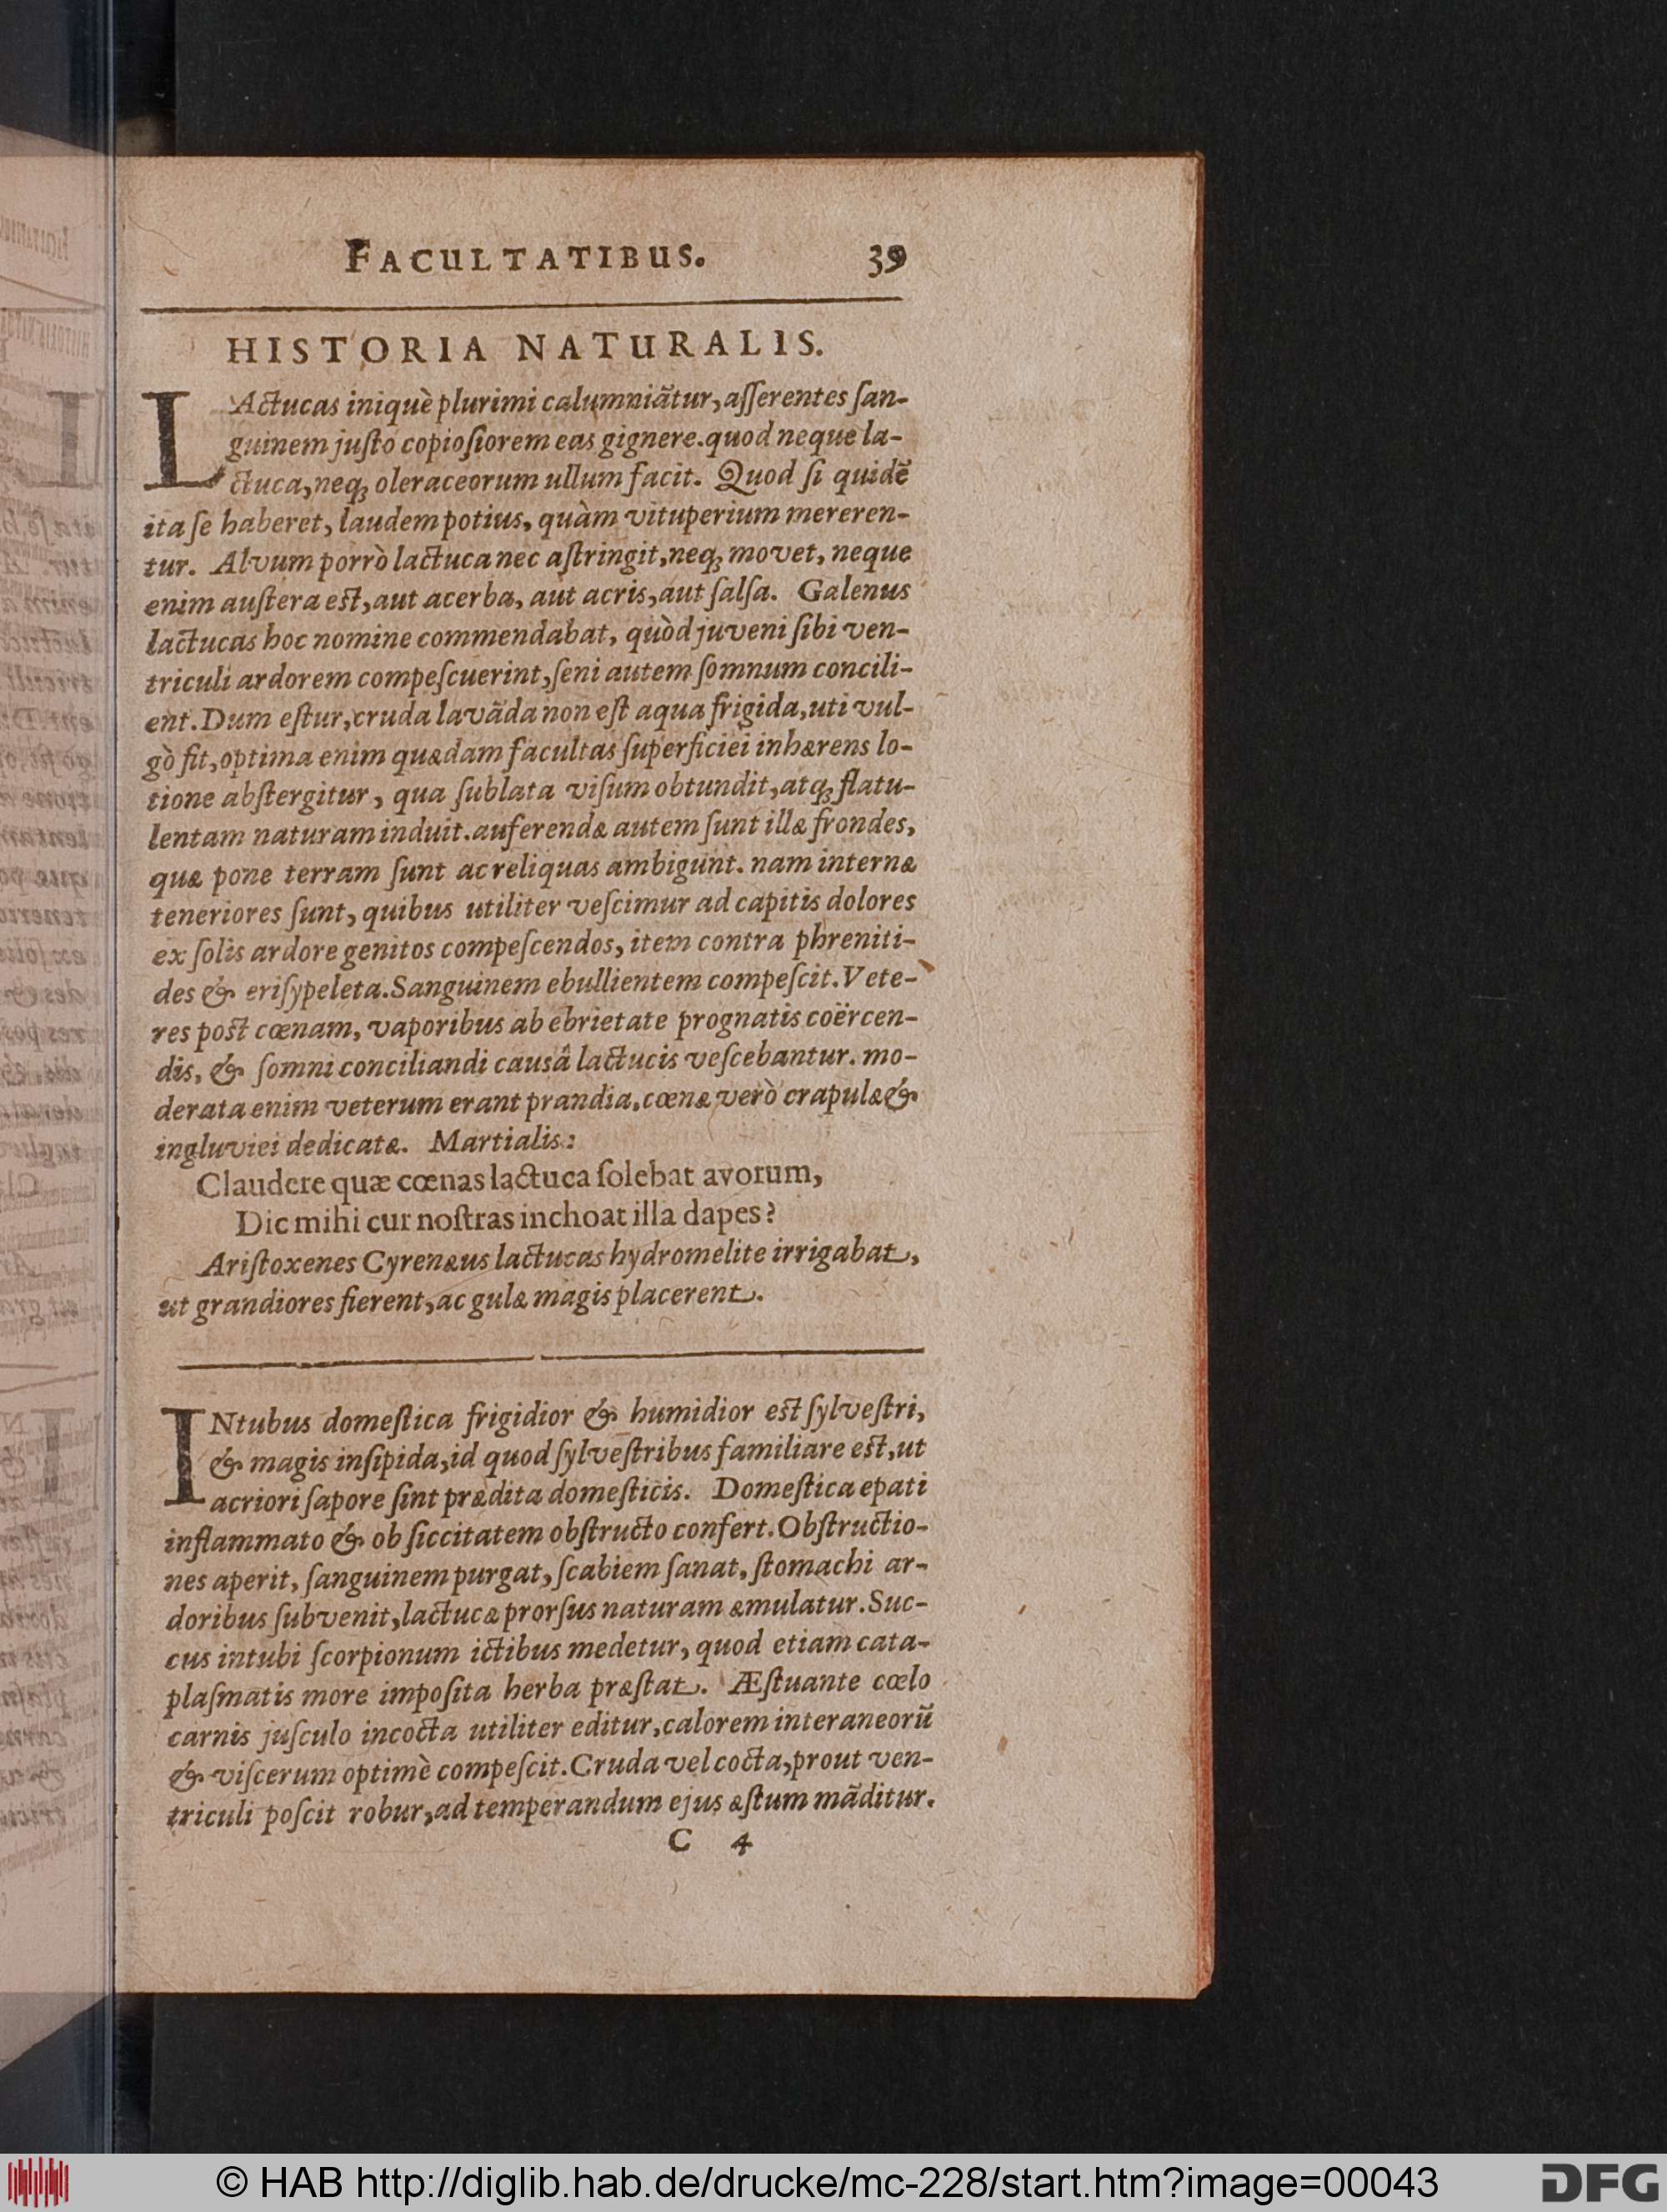 FACULTATIBUS. 39
HISTORIA NATURALIS.
LActucas iniquè plurimi calumniãtur, aſſerentes ſan-
guinem juſto copioſiorem eas gignere. quod neque la-
ctuca, neq; oleraceorum ullum facit. Quod ſi quidẽ
ita ſe haberet, laudem potius, quàm vituperium mereren-
tur. Alvum porrò lactuca nec aſtringit, neq; movet, neque
enim auſtera eſt, aut acerba, aut acris, aut ſalſa. Galenus
lactucas hoc nomine commendabat, quòd juveni ſibi ven-
triculi ardorem compeſcuerint, ſeni autem ſomnum concili-
ent. Dum eſtur, cruda lavãda non eſt aqua frigida, uti vul-
gò fit, optima enim quædam facultas ſuperficiei inhærens lo-
tione abſtergitur, qua ſublata viſum obtundit, atq; flatu-
lentam naturam induit. auferendæ autem ſunt illæ frondes,
quæ pone terram ſunt ac reliquas ambigunt. nam internæ
teneriores ſunt, quibus utiliter veſcimur ad capitis dolores
ex ſolis ardore genitos compeſcendos, item contra phreniti-
des & eriſypeleta. Sanguinem ebullientem compeſcit. Vete-
res poſt cœnam, vaporibus ab ebrietate prognatis coërcen-
dis, & ſomni conciliandi causâ lactucis veſcebantur. mo-
derata enim veterum erant prandia, cœnæ verò crapulæ &
ingluviei dedicatæ. Martialis:
Claudere quæ cœnas lactuca ſolebat avorum,
Dic mihi cur noſtras inchoat illa dapes?
Ariſtoxenes Cyrenæus lactucas hydromelite irrigabat,
ut grandiores fierent, ac gulæ magis placerent.
INtubus domeſtica frigidior & humidior eſt ſylveſtri,
& magis inſipida, id quod ſylveſtribus familiare eſt, ut
acriori ſapore ſint prædita domeſticis. Domeſtica epati
inflammato & ob ſiccitatem obſtructo confert. Obſtructio-
nes aperit, ſanguinem purgat, ſcabiem ſanat, ſtomachi ar-
doribus ſubvenit, lactucæ prorſus naturam æmulatur. Suc-
cus intubi ſcorpionum ictibus medetur, quod etiam cata-
plaſmatis more impoſita herba præſtat. Æſtuante cœlo
carnis juſculo incocta utiliter editur, calorem interaneorũ
& viſcerum optimè compeſcit. Cruda vel cocta, prout ven-
triculi poſcit robur, ad temperandum ejus æſtum mãditur.
C 4
© HAB http://diglib.hab.de/drucke/mc-228/start.htm?image=00043
DFG